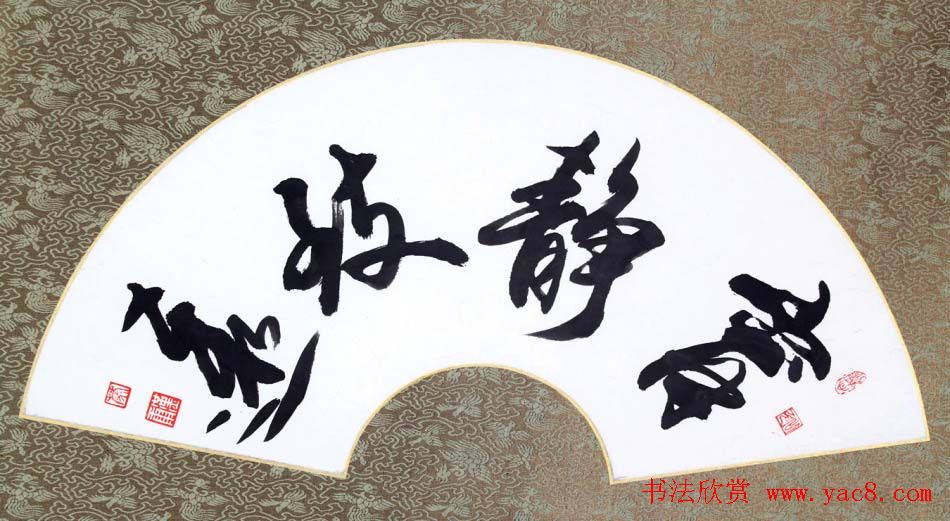 寧静致遠
书法欣赏 www.yac8.com